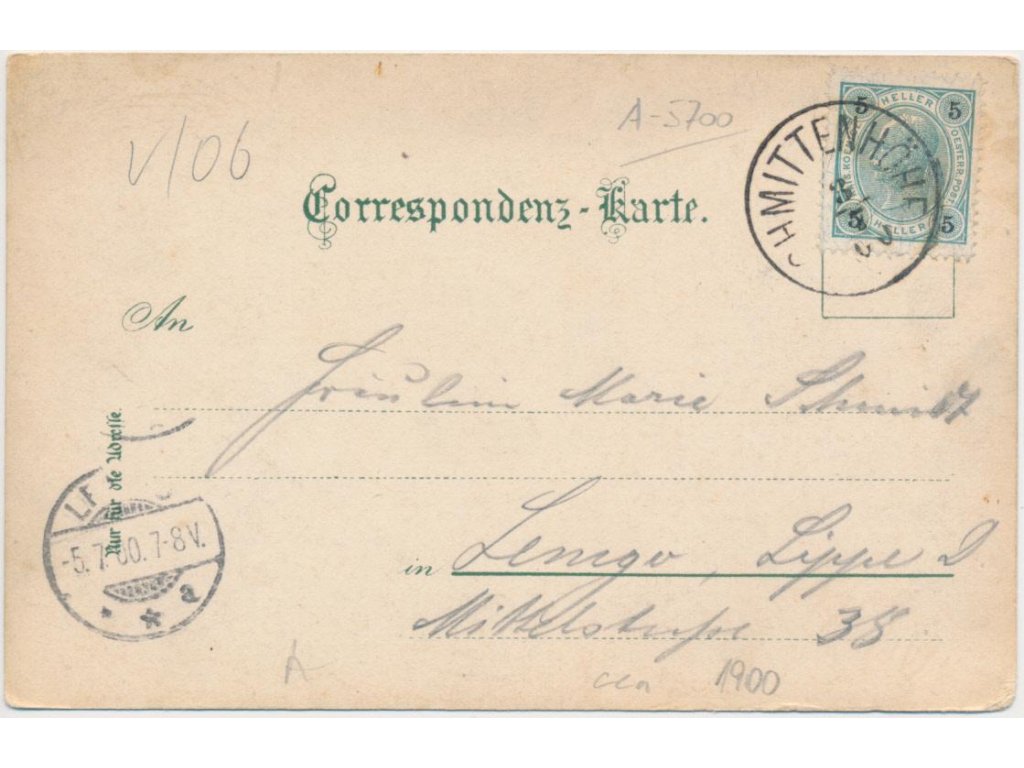 V/06
A-5700
Correspondenz-Karte.
5 HELLER 5
OESTERR. POST
5 HELLER 5
CHMITTENHÖHE
3/7
An
Fräulein Marie Schmidt
Nur für die Adresse.
LE
-5.7.00.7-8V.
* a
in Lemgo, Lippe D.
Mittelstraße 38
A
cca 1900